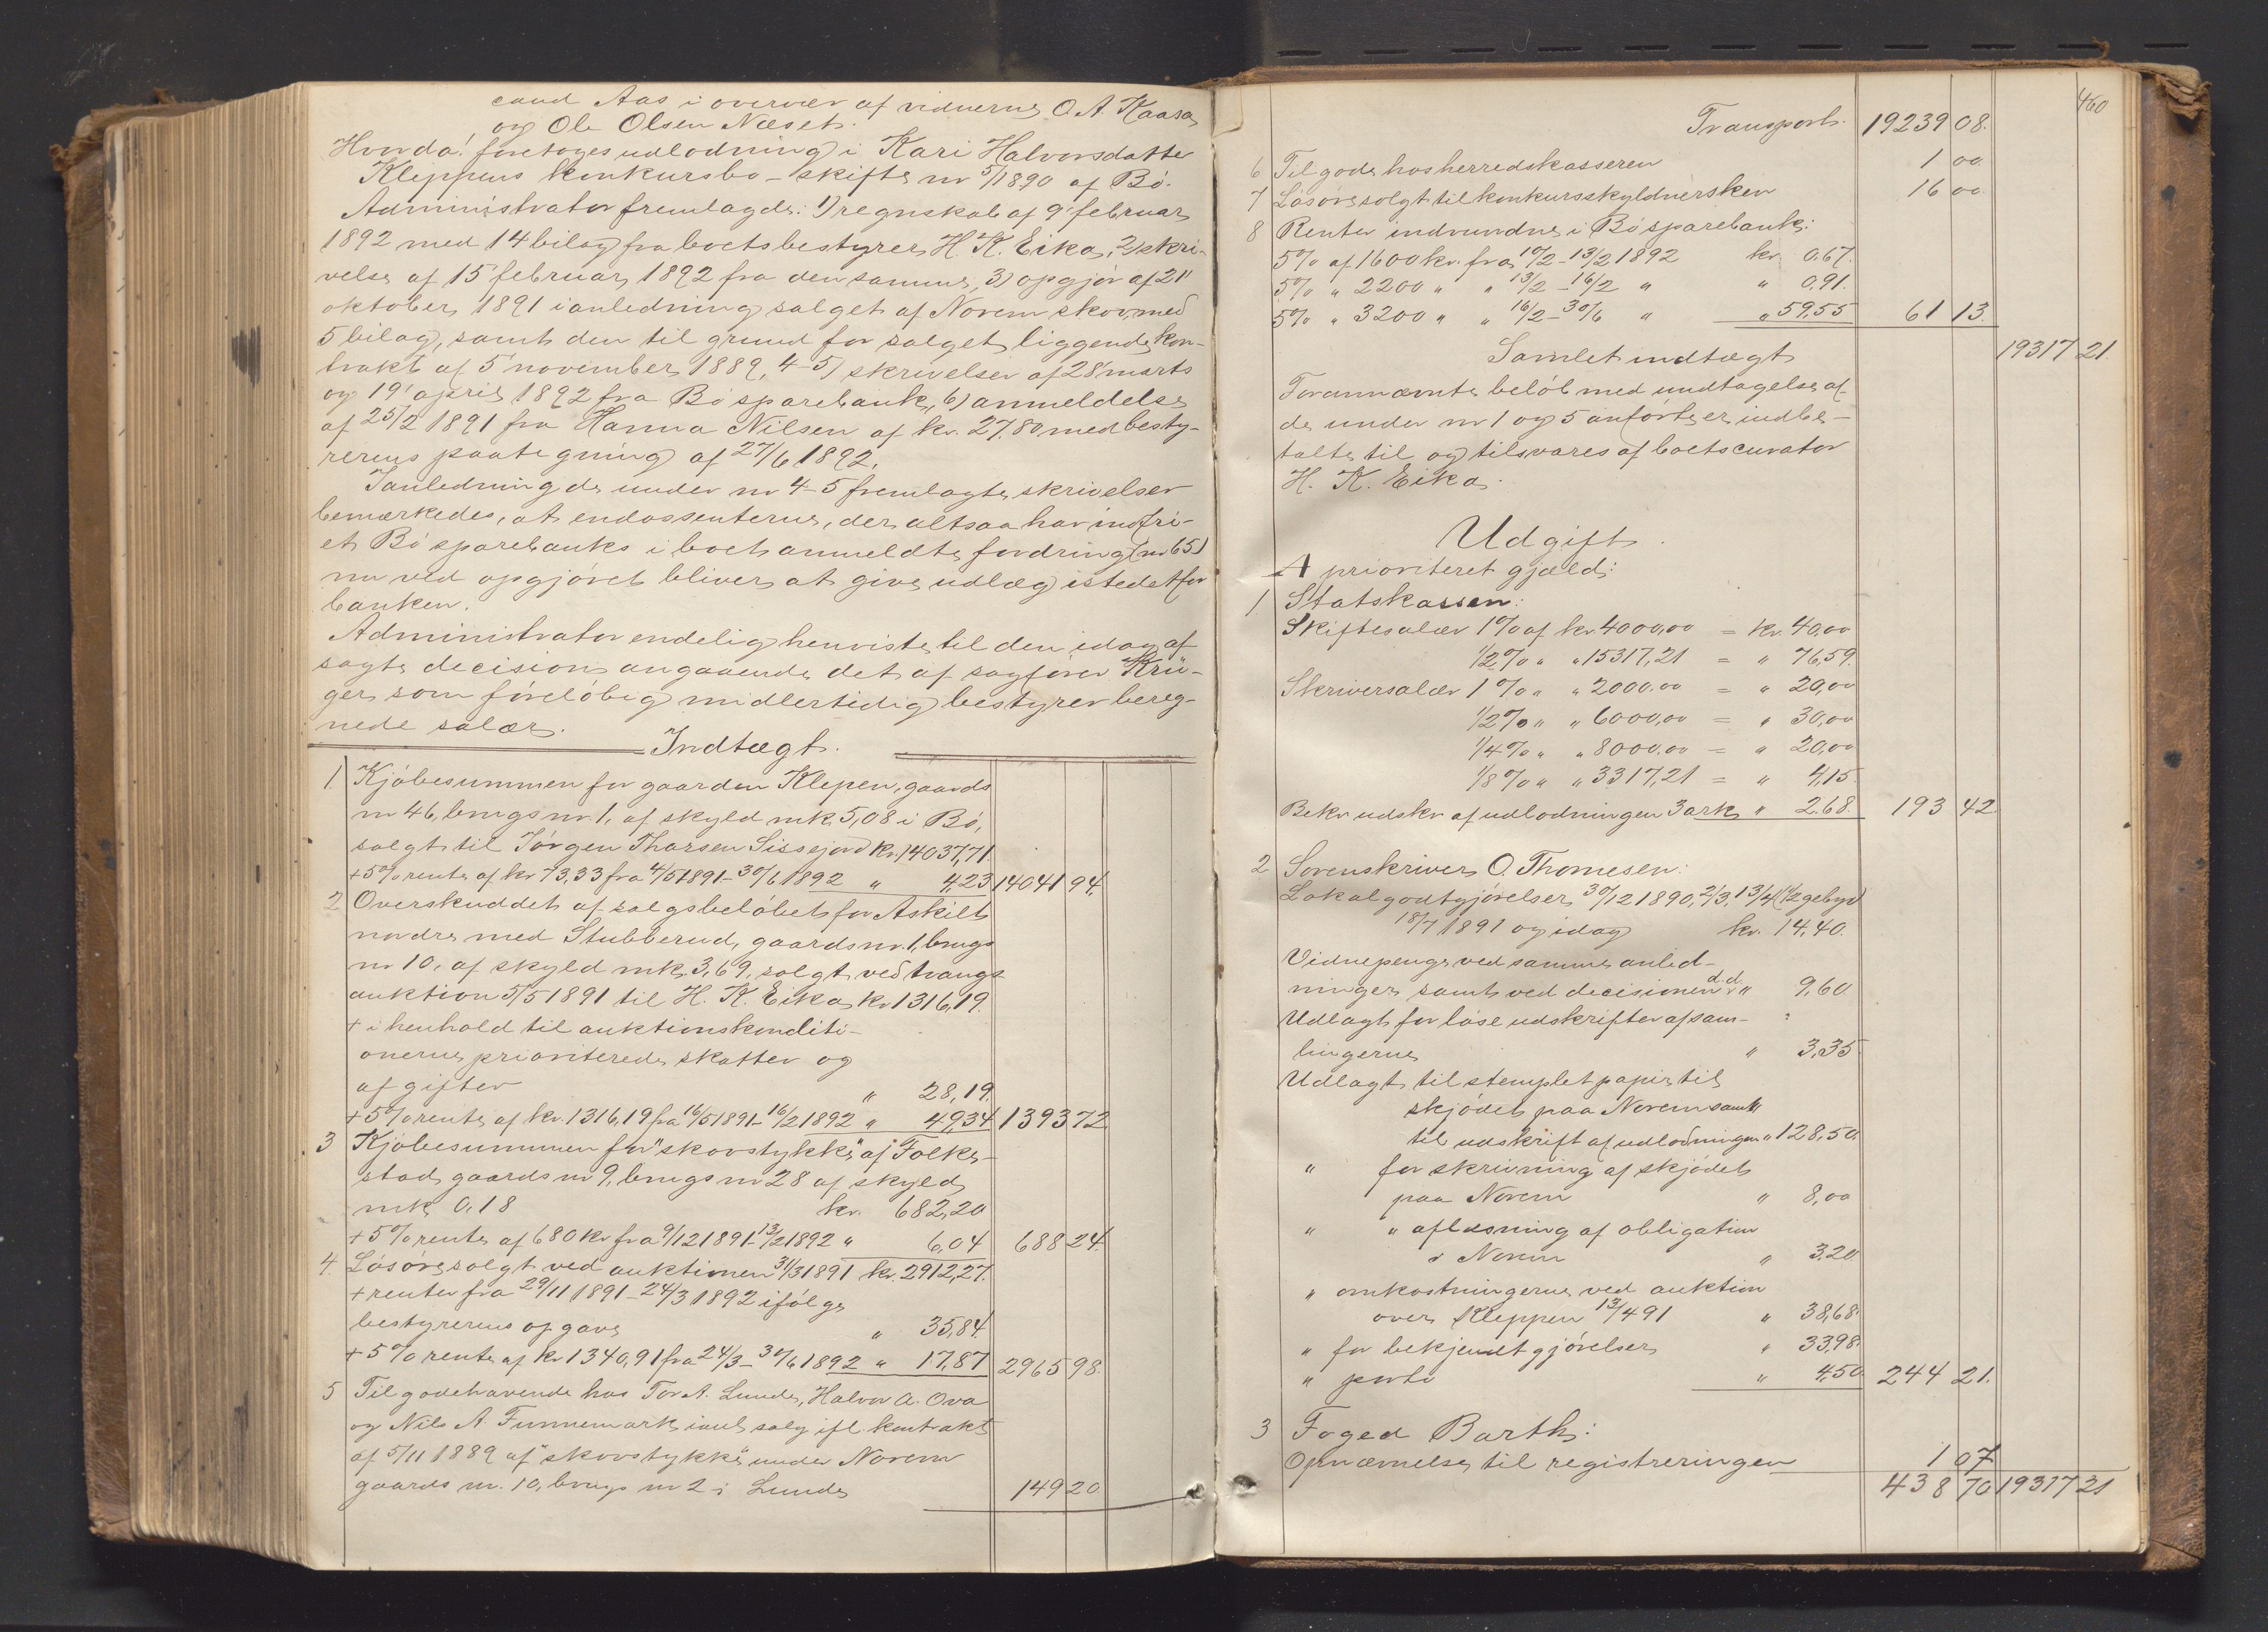 cand Aas i overvær af vidnerne O. A. Kaasa
og Ole Olsen Næset.
Hvorda! foretoges udlodning i Kari Halvorsdatter
Kleppens konkursbo – skifte nr 5/1890 af Bö.
Administrator fremlagde: 1) regnskab af 9' februar
1892 med 14 bilag fra boets bestyrer H. K. Eika, 2) skri-
velse af 15' februar 1892 fra den samme, 3) opgjör af 21'
oktober 1891 i anledning salget af Norem skov, med
5 bilag, samt den til grund for salget liggende kon-
trakt af 5' november 1889, 4-5) skrivelser af 28' marts
og 19' april 1892 fra Bö sparebank, 6) anmeldelse
af 25/2 1891 fra Hanna Nilsen af kr. 27.80 med besty-
rerens paategning af 27/6 1892.
I anledning de under nr 4-5 fremlagte skrivelser
bemærkedes, at endossenterne, der altsaa har indfri-
et Bö sparebanks i boet anmeldte fordring (nr 65)
nu ved opgjöret bliver at give udlæg istedetfor
banken.
Administrator endelig henviste til den idag af-
sagte decision angaaende det af sagförer Krü-
ger som forelöbig midlertidig bestyrer bereg-
nede salær.
Indtægt.
1. Kjöbesummen for gaarden Klepen, gaards
nr 46, brugs nr. 1, af skyld mk. 5,08 i Bö,
solgt til Jörgen Thorsen Sissejord kr. 14037,71
+ 5% rente af kr 73,33 fra 4/5 1891 - 30/6 1892 " 4,23 14041 94.
2 Overskuddet af salgsbelöbet for Askilt
nordre med Stubberud, gaards nr. 1, brugs
nr 10, af skyld mk. 3,69, solgt ved tvangs
auktion 5/5 1891 til H. K. Eika kr 1316,19.
+ i henhold til auktionskonditi-
onerne prioriterede skatter og
afgifter " 28,19.
+ 5% rente af kr. 1316,19 fra 16/5 1891 - 16/2 1892 " 49,34 1393 72
3 Kjöbesummen for "skovstykke" af Folke-
stad gaards nr 9, brugs nr 28 af skyld
mk. 0,18 kr. 682,20
+ 5% rente af 680 kr fra 9/12 1891 - 13/2 1892 " 6,04 688 24.
4. Lösöre solgt ved auktionen 31/3 1891 kr. 2912,27.
+ renter fra 29/11 1891 - 24/3 1892 ifölge
bestyrerens opgave " 35,84.
+ 5% rente af kr 1340,91 fra 24/3 - 30/6 1892 " 17,87 2965 98.
5 Tilgodehavende hos Tor A. Lunde, Halvor A. Ova
og Nils A. Funnemark i anl. salg ifl. kontrakt
af 5/11 1889 af "skovstykke" under Norem
gaards nr. 10, brugs nr 2 i Lunde 149 20
460
Transport. 19239 08.
6 Tilgode hos herredskasseren 1 00
7 Lösöre solgt til konkursskyldnersken 16 00
8 Renter indvundne i Bö sparebank:
5% af 1600 kr. fra 10/2 - 13/2 1892 kr. 0.67.
5% " 2200 " " 13/2 - 16/2 " " 0,91.
5% " 3200 " " 16/2 - 30/6 " " 59,55 61 13.
Samlet indtægt 19317 21.
Forannævnte belöb med undtagelse af
de under nr 1 og 5 anförte er indbe-
talte til og tilsvares af boets curator
H. K. Eika.
Udgift.
A prioriteret gjæld:
1. Statskassen:
Skiftesalær 1% af kr 4000,00 = kr. 40,00
1/2% " " 15317,21 = " 76,59.
Skriversalær 1% " " 2000.00 = " 20,00
1/2% " " 6000,00 = " 30,00
1/4% " " 8000.00 = " 20,00
1/8% " " 3317,21 = " 4,15.
Bekr udskr af udlodningen 3 ark " 2.68. 193 42.
2 Sorenskriver O. Thomesen:
Lokalgodtgjörelser 30/12 1890, 2/3, 13/4 (1/2 gebyr)
18/7 1891 og idag kr. 14,40.
Vidnepenge ved samme anled-
ninger samt ved decisionen d. d. " 9,60
Udlagt for löse udskrifter af sam-
lingerne " 3,35
Udlagt til stemplet papir til
skjödet paa Norem samt
til udskrift af udlodningen " 128,50.
" for skrivning af skjödet
paa Norem " 8,00
" " aflæsning af obligation
i Norem " 3.20
" omkostningerne ved auktion
over Kleppen 13/4 91 " 38,68.
" for bekjendtgjörelser " 33,98.
" porto " 4,50 244 21.
3 Foged Barth:
Opnævnelse til registreringen 1 07
438 70 19317 21